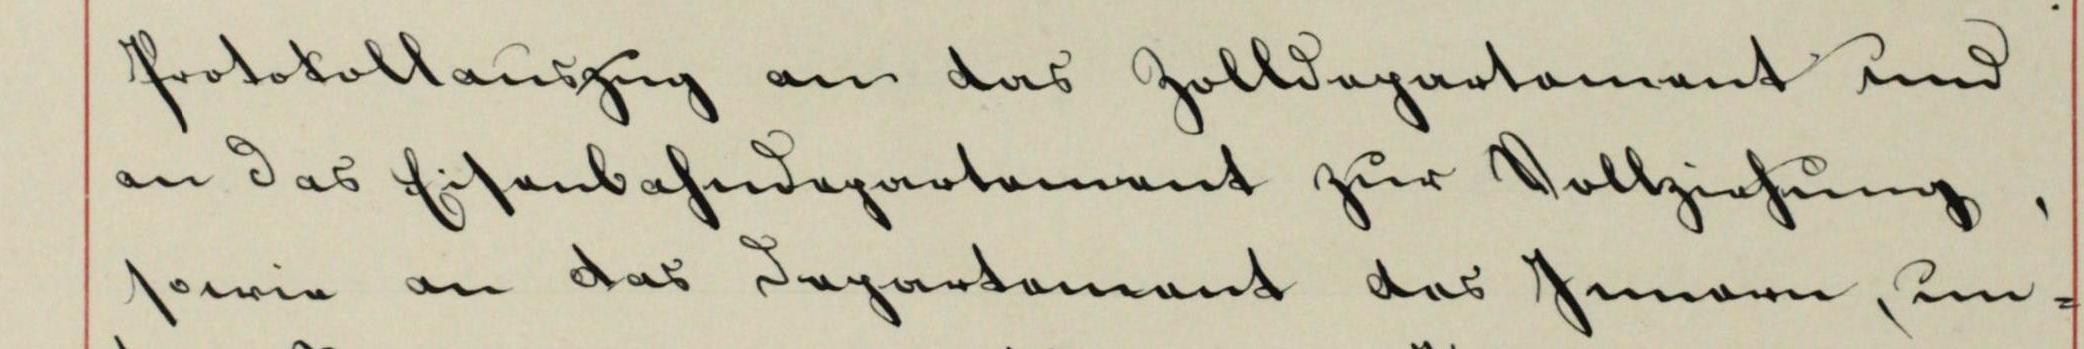 Protokollauszug an das Zolldepartement und
an das Eisenbahndepartement zur Vollziehung,
sowie an das Departement des Innern, un=